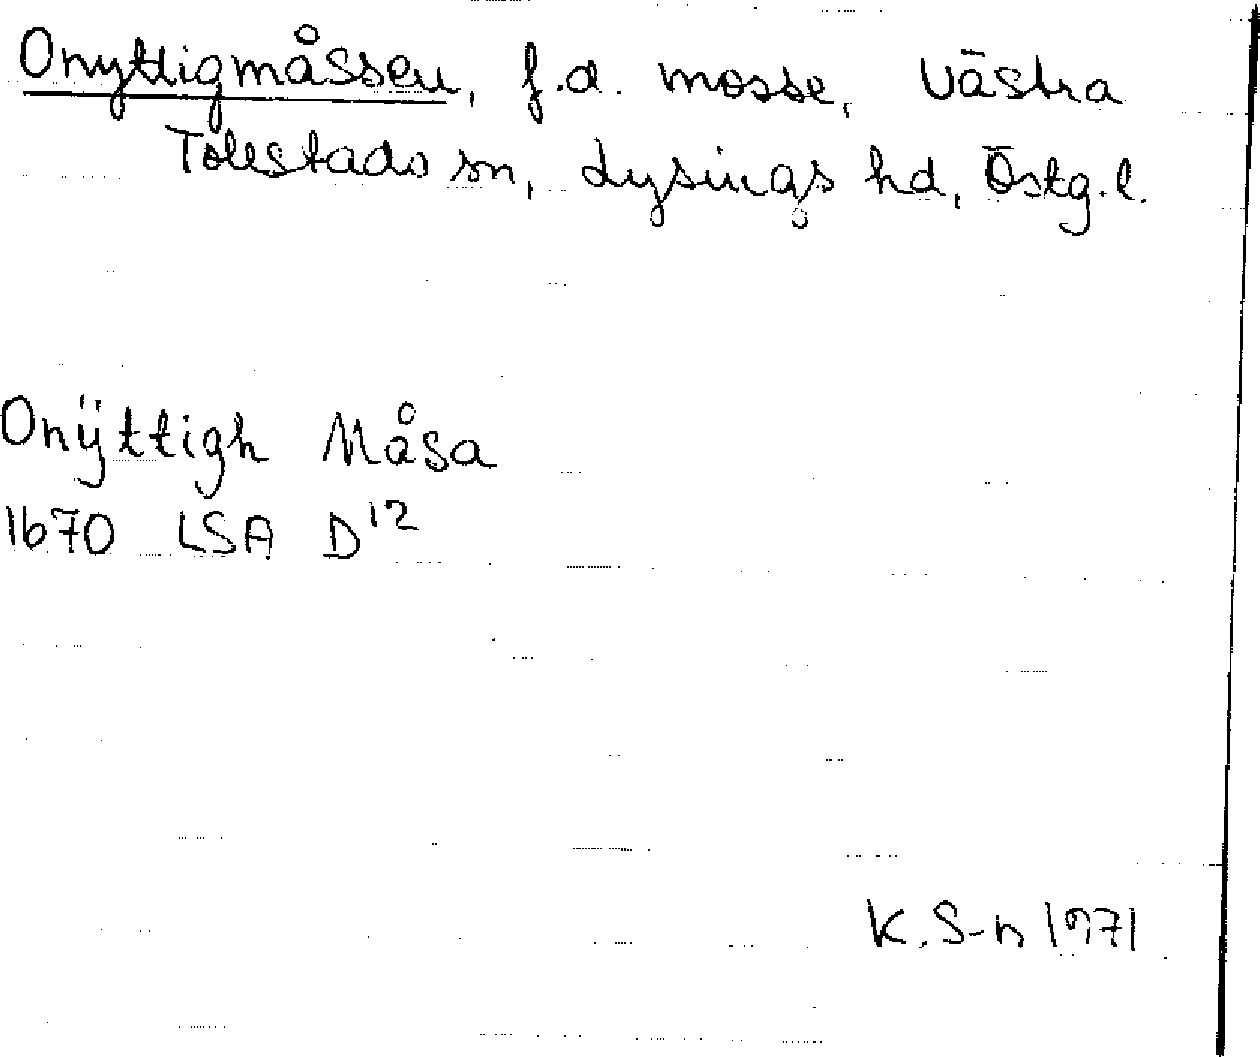 Onyttigmåssen, f.d. mosse, Västra
Tollstads sn, Lysings hd, Östg.l.
Onÿttigh Måsa
1670 LSA D12
K. S-n 1971